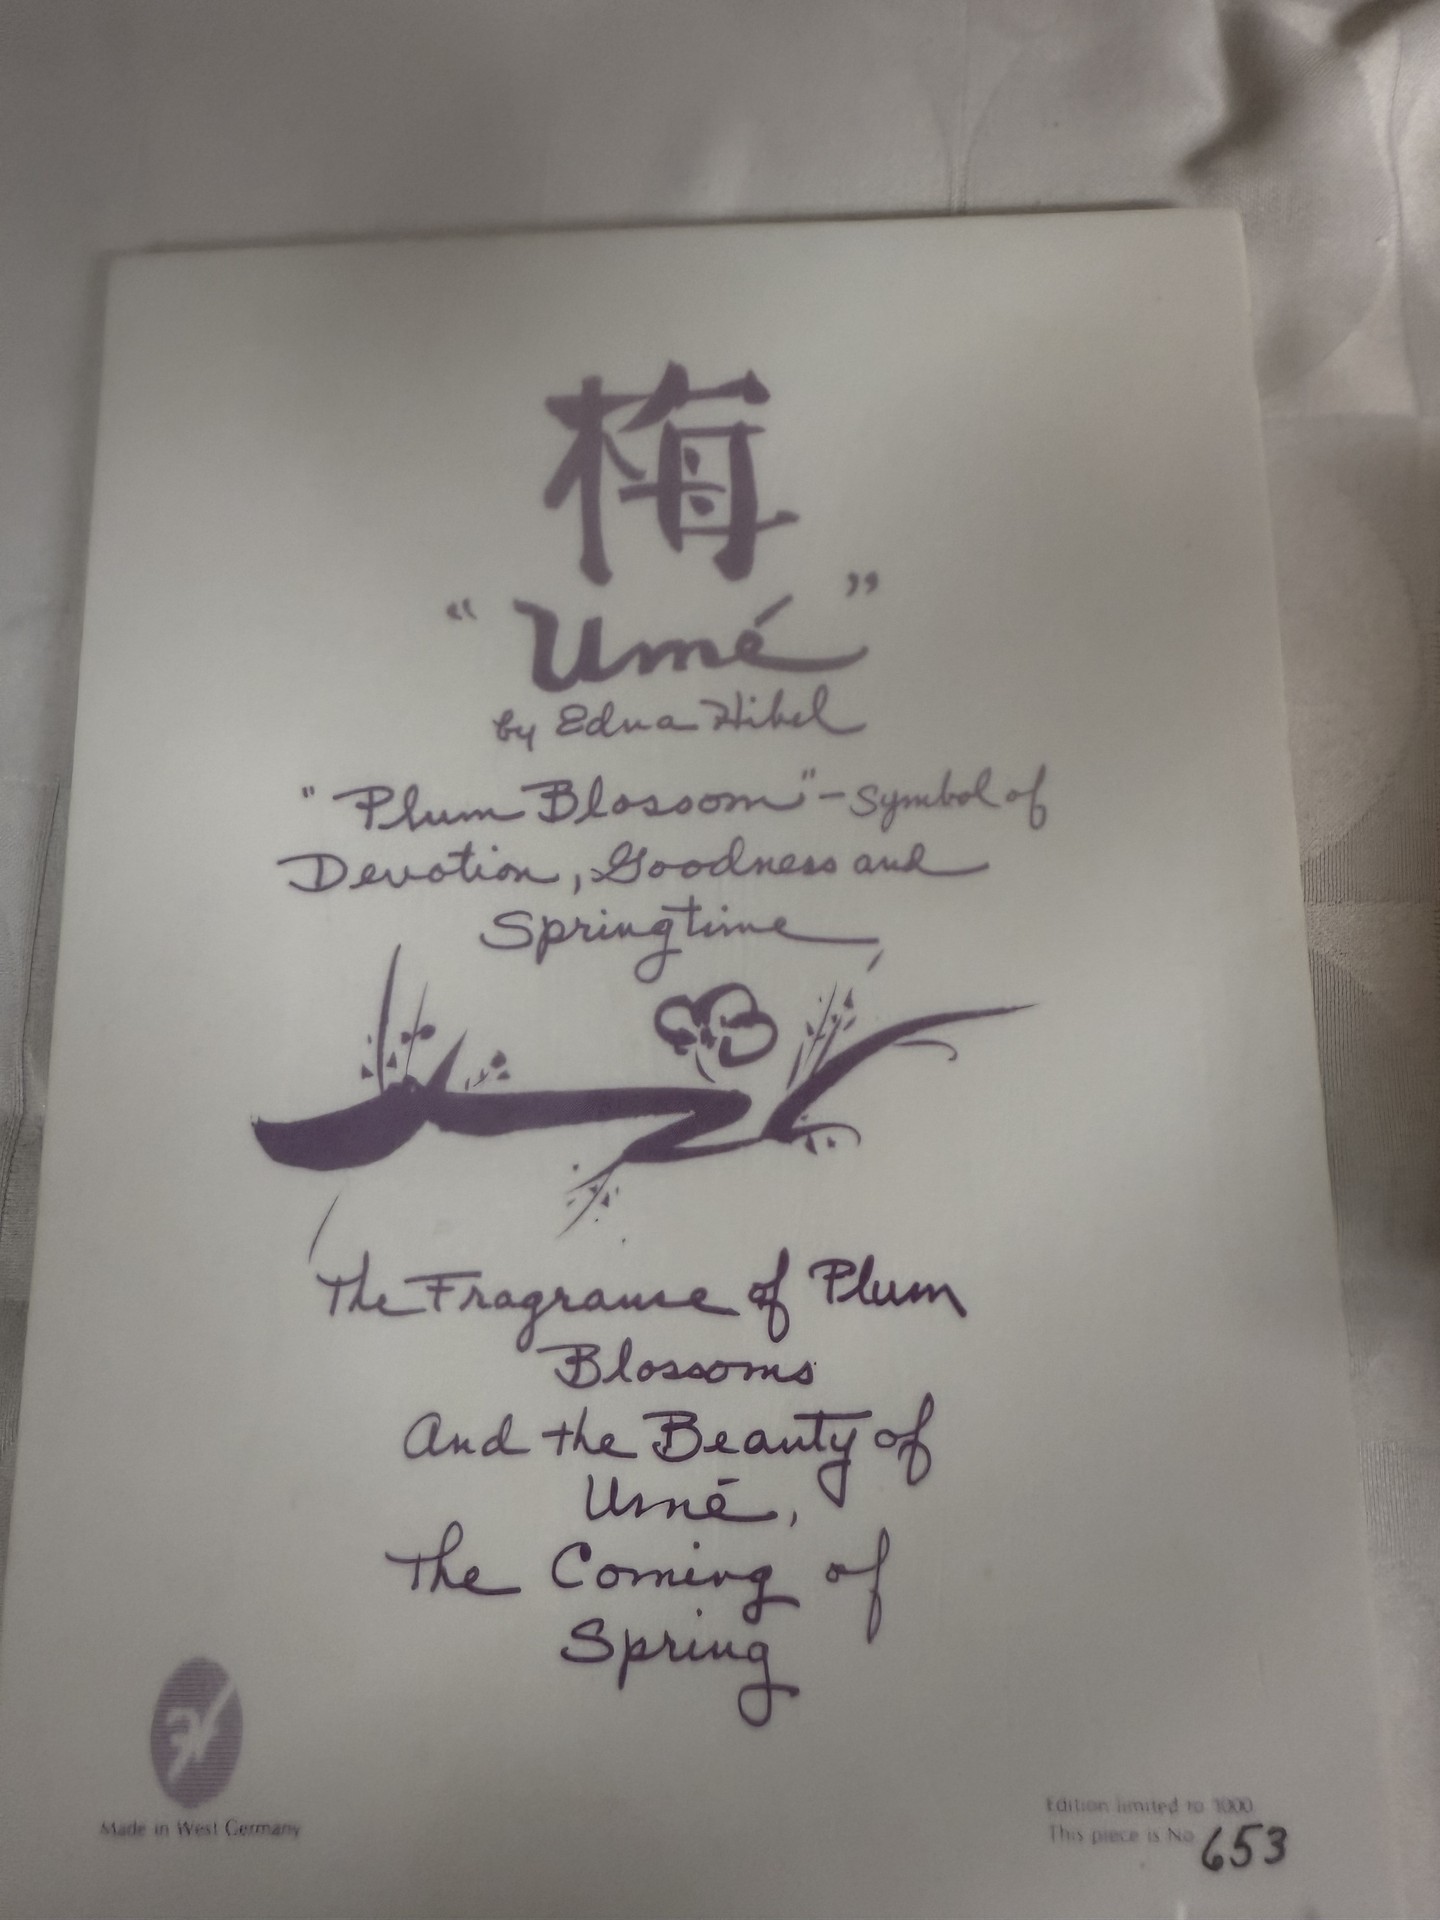 梅
"Umé"
by Edna Hibel
"Plum Blossom" - Symbol of
Devotion, Goodness and
Springtime
The Fragrance of Plum
Blossoms
And the Beauty of
Umé,
The Coming of
Spring
H
Made in West Germany
Edition limited to 1000.
This piece is No 653